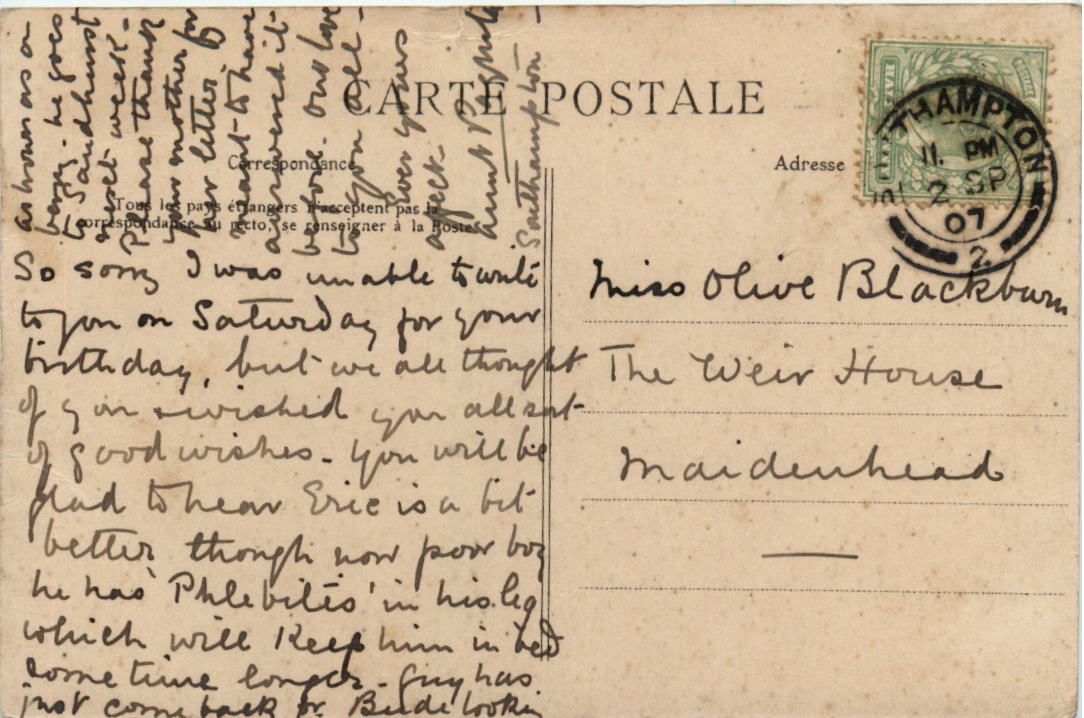 CARTE POSTALE
Correspondance
Adresse
Tous les pays étrangers n'acceptent pas la
correspondance au recto, se renseigner à la Poste
So sorry I was unable to write
to you on Saturday for your
birthday, but we all thought
of you & wished you all sort
of good wishes - You will be
glad to hear Eric is a bit
better, though now poor boy
he has 'Phlebitis' in his leg
which will keep him in bed
some time longer - Guy has
just come back fr. Bude looking
as brown as a
berry - he goes
to Sandhurst
next week -
Please thank
your mother for
her letter. I
meant to have
answered it
before. Our love
to you all -
Ever yours
affec
Aunt
Southampton
Miss Olive Blackburn
The Weir House
Maidenhead
SOUTHAMPTON
11. PM
2 SP
07
2